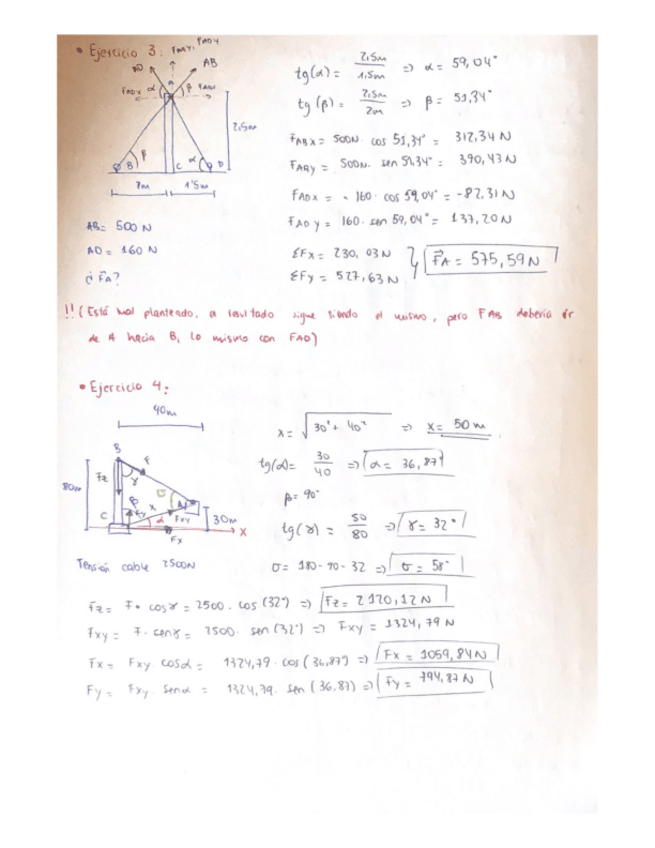 • Ejercicio 3:
FAD Y
FABY
AD
AB
FADX
α
A
β
FABX
2,5m
B
β
C
α
D
2m
1'5m
AB= 500 N
AD = 160 N
¿ FA?
tg(α) = 2,5m / 1,5m => α = 59,04°
tg (β) = 2,5m / 2m => β = 51,34°
FABX = 500N · cos 51,34° = 312,34 N
FABY = 500N · sen 51,34° = 390,43 N
FADX = - 160 · cos 59,04° = -82,31 N
FADY = 160 · sen 59,04° = 137,20 N
ΣFx = 230,03 N
ΣFy = 527,63 N
FA = 575,59 N
!! (Está mal planteado, el resultado sigue siendo el mismo, pero FAB debería ir
de A hacia B, lo mismo con FAD)
• Ejercicio 4:
40m
B
F
Fz
γ
80m
σ
A
β
x
Fy
C
α
Fxy
30m
Fx
X
Tensión cable 2500N
x = √30² + 40² => x = 50 m
tg(α) = 30 / 40 => α = 36,87°
β = 90°
tg(γ) = 50 / 80 => γ = 32°
σ = 180 - 90 - 32 => σ = 58°
Fz = F · cos γ = 2500 · cos (32°) => Fz = 2120,12 N
Fxy = F · senγ = 2500 · sen (32°) => Fxy = 1324,79 N
Fx = Fxy cosα = 1324,79 · cos (36,87) => Fx = 1059,84 N
Fy = Fxy · senα = 1324,79 · sen (36,87) => Fy = 794,87 N